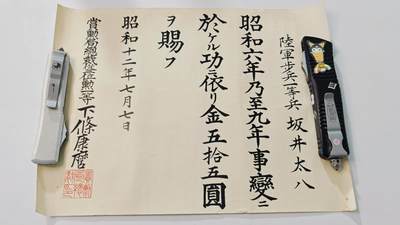 陸軍歩兵一等兵 坂井太八
昭和六年乃至九年事變ニ
於ケル功ニ依リ金五拾五圓
ヲ賜フ
昭和十二年七月七日
賞勲局總裁従三位勲一等下條康麿